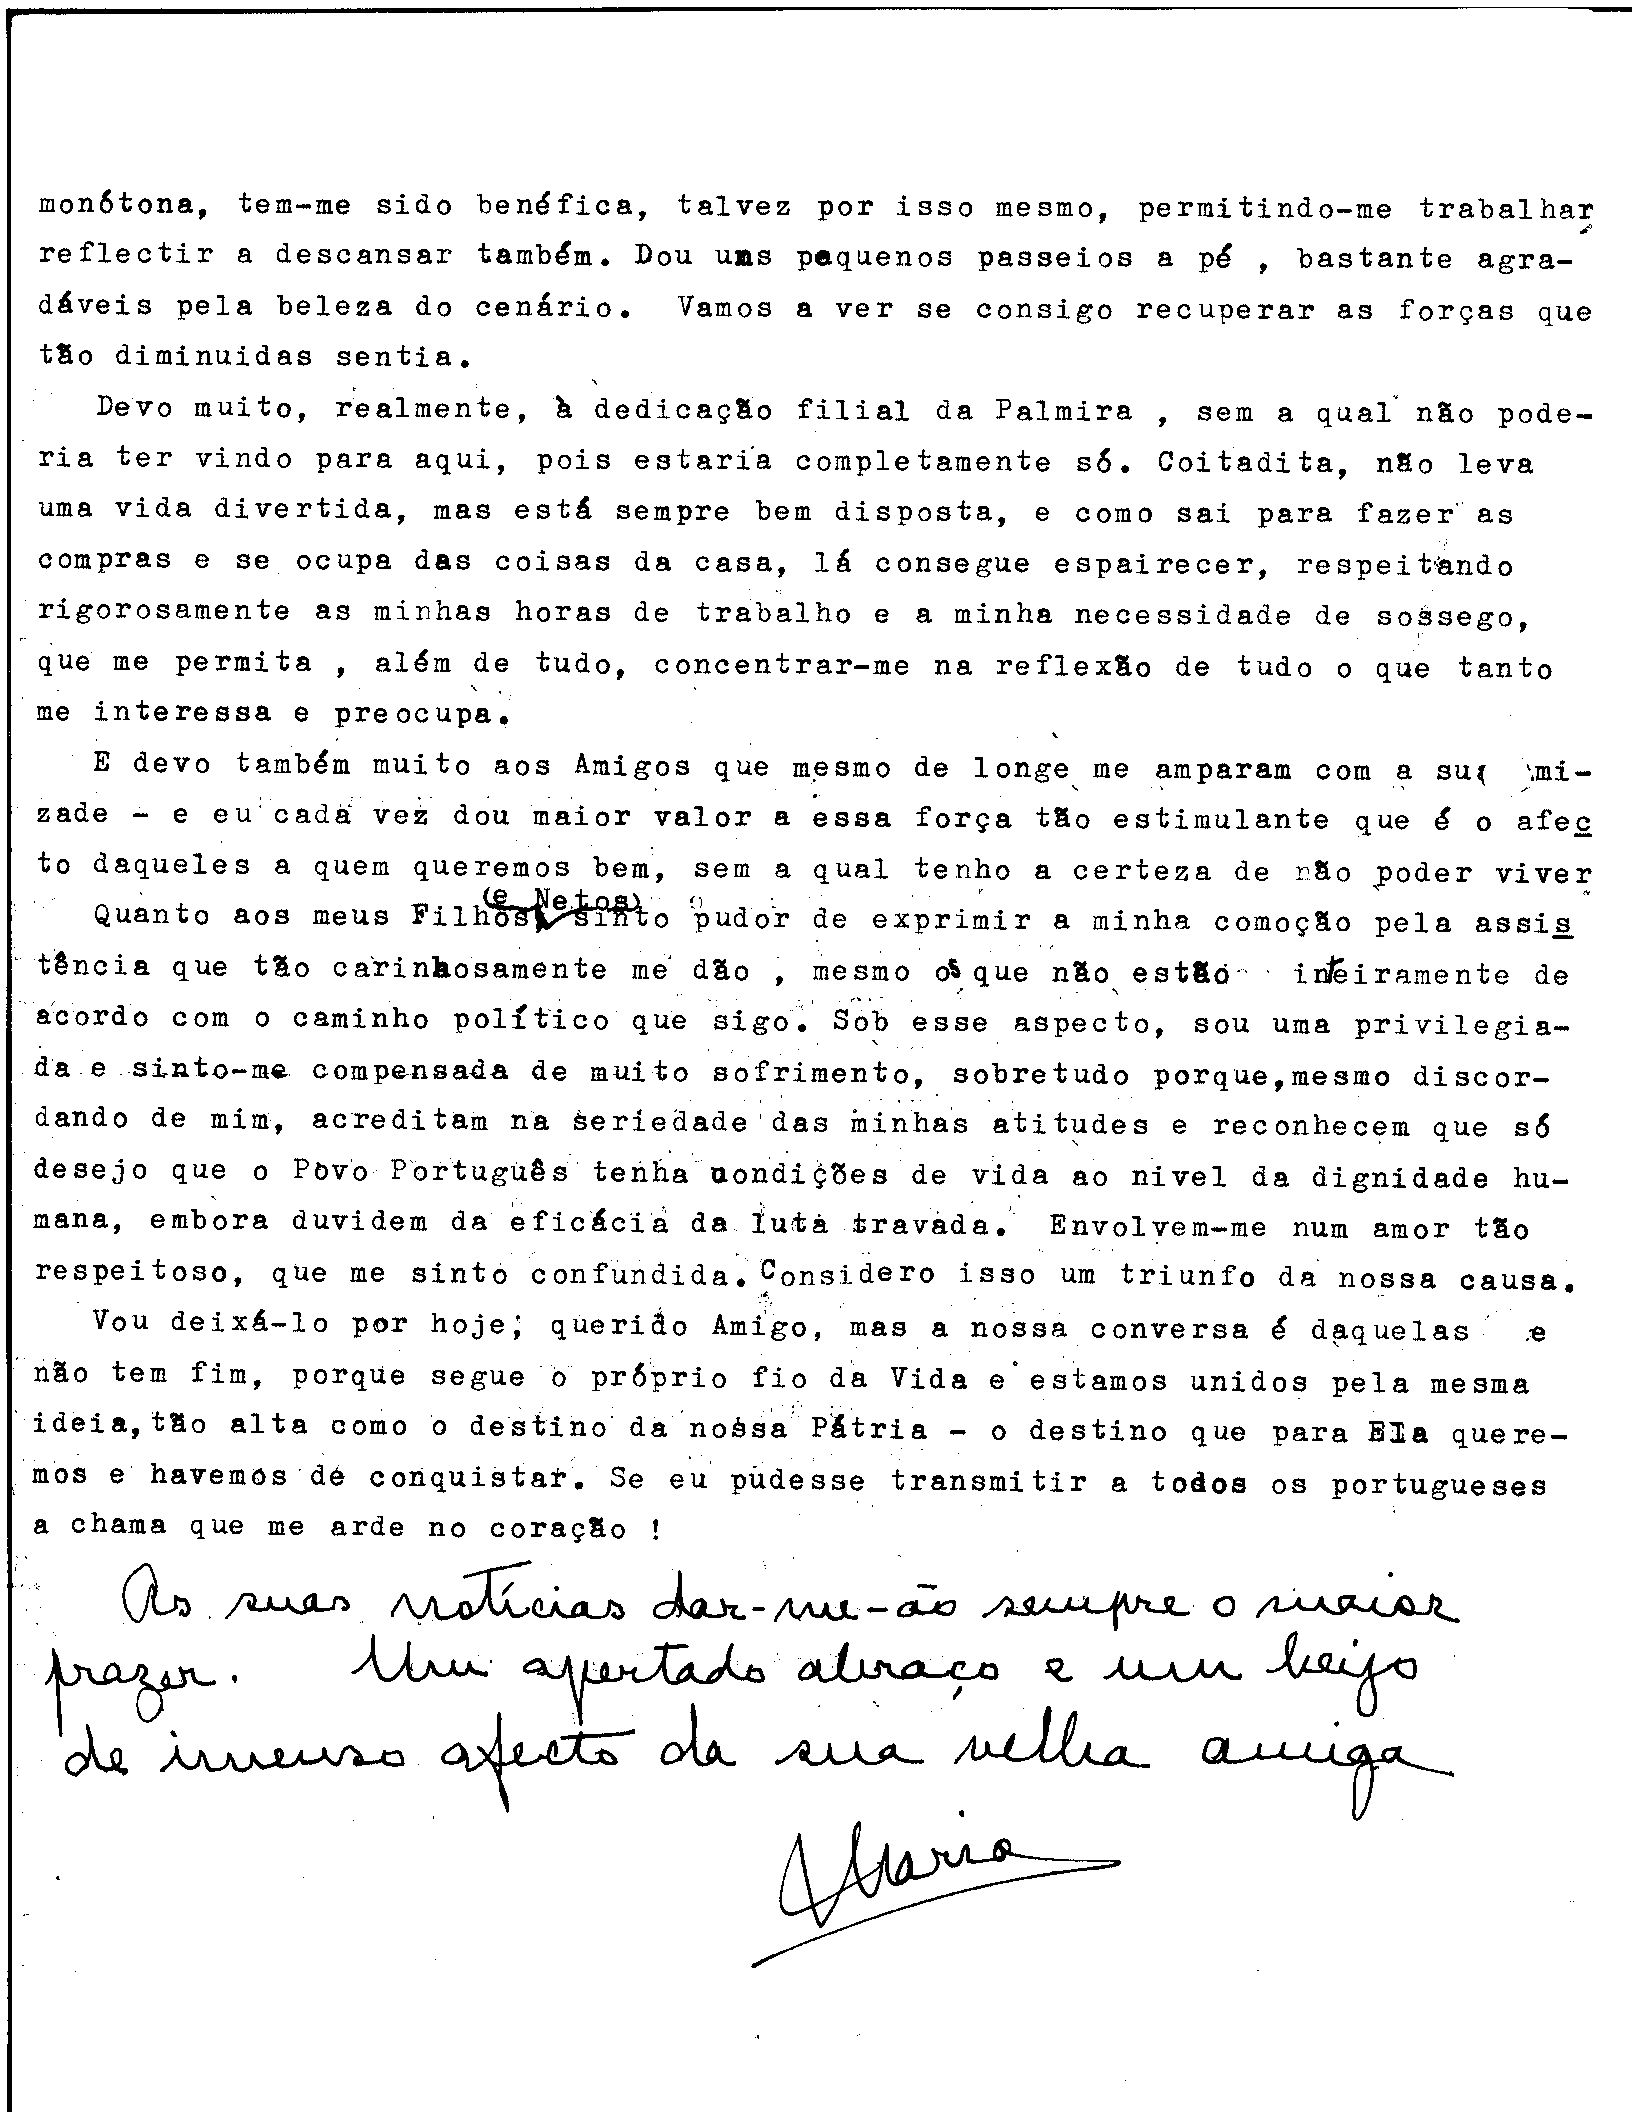 monótona, tem-me sido benéfica, talvez por isso mesmo, permitindo-me trabalhar,
reflectir a descansar também. Dou uns pequenos passeios a pé , bastante agra-
dáveis pela beleza do cenário. Vamos a ver se consigo recuperar as forças que
tão diminuidas sentia.
Devo muito, realmente, à dedicação filial da Palmira , sem a qual não pode-
ria ter vindo para aqui, pois estaria completamente só. Coitadita, não leva
uma vida divertida, mas está sempre bem disposta, e como sai para fazer as
compras e se ocupa das coisas da casa, lá consegue espairecer, respeitando
rigorosamente as minhas horas de trabalho e a minha necessidade de sossego,
que me permita , além de tudo, concentrar-me na reflexão de tudo o que tanto
me interessa e preocupa.
E devo também muito aos Amigos que mesmo de longe me amparam com a su mi-
zade - e eu cada vez dou maior valor a essa força tão estimulante que é o afec
to daqueles a quem queremos bem, sem a qual tenho a certeza de não poder viver
(e Netos)
Quanto aos meus Filhos, sinto pudor de exprimir a minha comoção pela assis
tência que tão carinhosamente me dão , mesmo os que não estão inteiramente de
acordo com o caminho político que sigo. Sob esse aspecto, sou uma privilegia-
da e sinto-me compensada de muito sofrimento, sobretudo porque,mesmo discor-
dando de mim, acreditam na seriedade das minhas atitudes e reconhecem que só
desejo que o Povo Português tenha condições de vida ao nivel da dignidade hu-
mana, embora duvidem da eficácia da luta travada. Envolvem-me num amor tão
respeitoso, que me sinto confundida. Considero isso um triunfo da nossa causa.
Vou deixá-lo por hoje, querido Amigo, mas a nossa conversa é daquelas e
não tem fim, porque segue o próprio fio da Vida e estamos unidos pela mesma
ideia, tão alta como o destino da nossa Pátria - o destino que para Ela quere-
mos e havemos de conquistar. Se eu pudesse transmitir a todos os portugueses
a chama que me arde no coração !
As suas notícias dar-me-ão sempre o maior
prazer. Um apertado abraço e um beijo
de imenso afecto da sua velha amiga
Maria